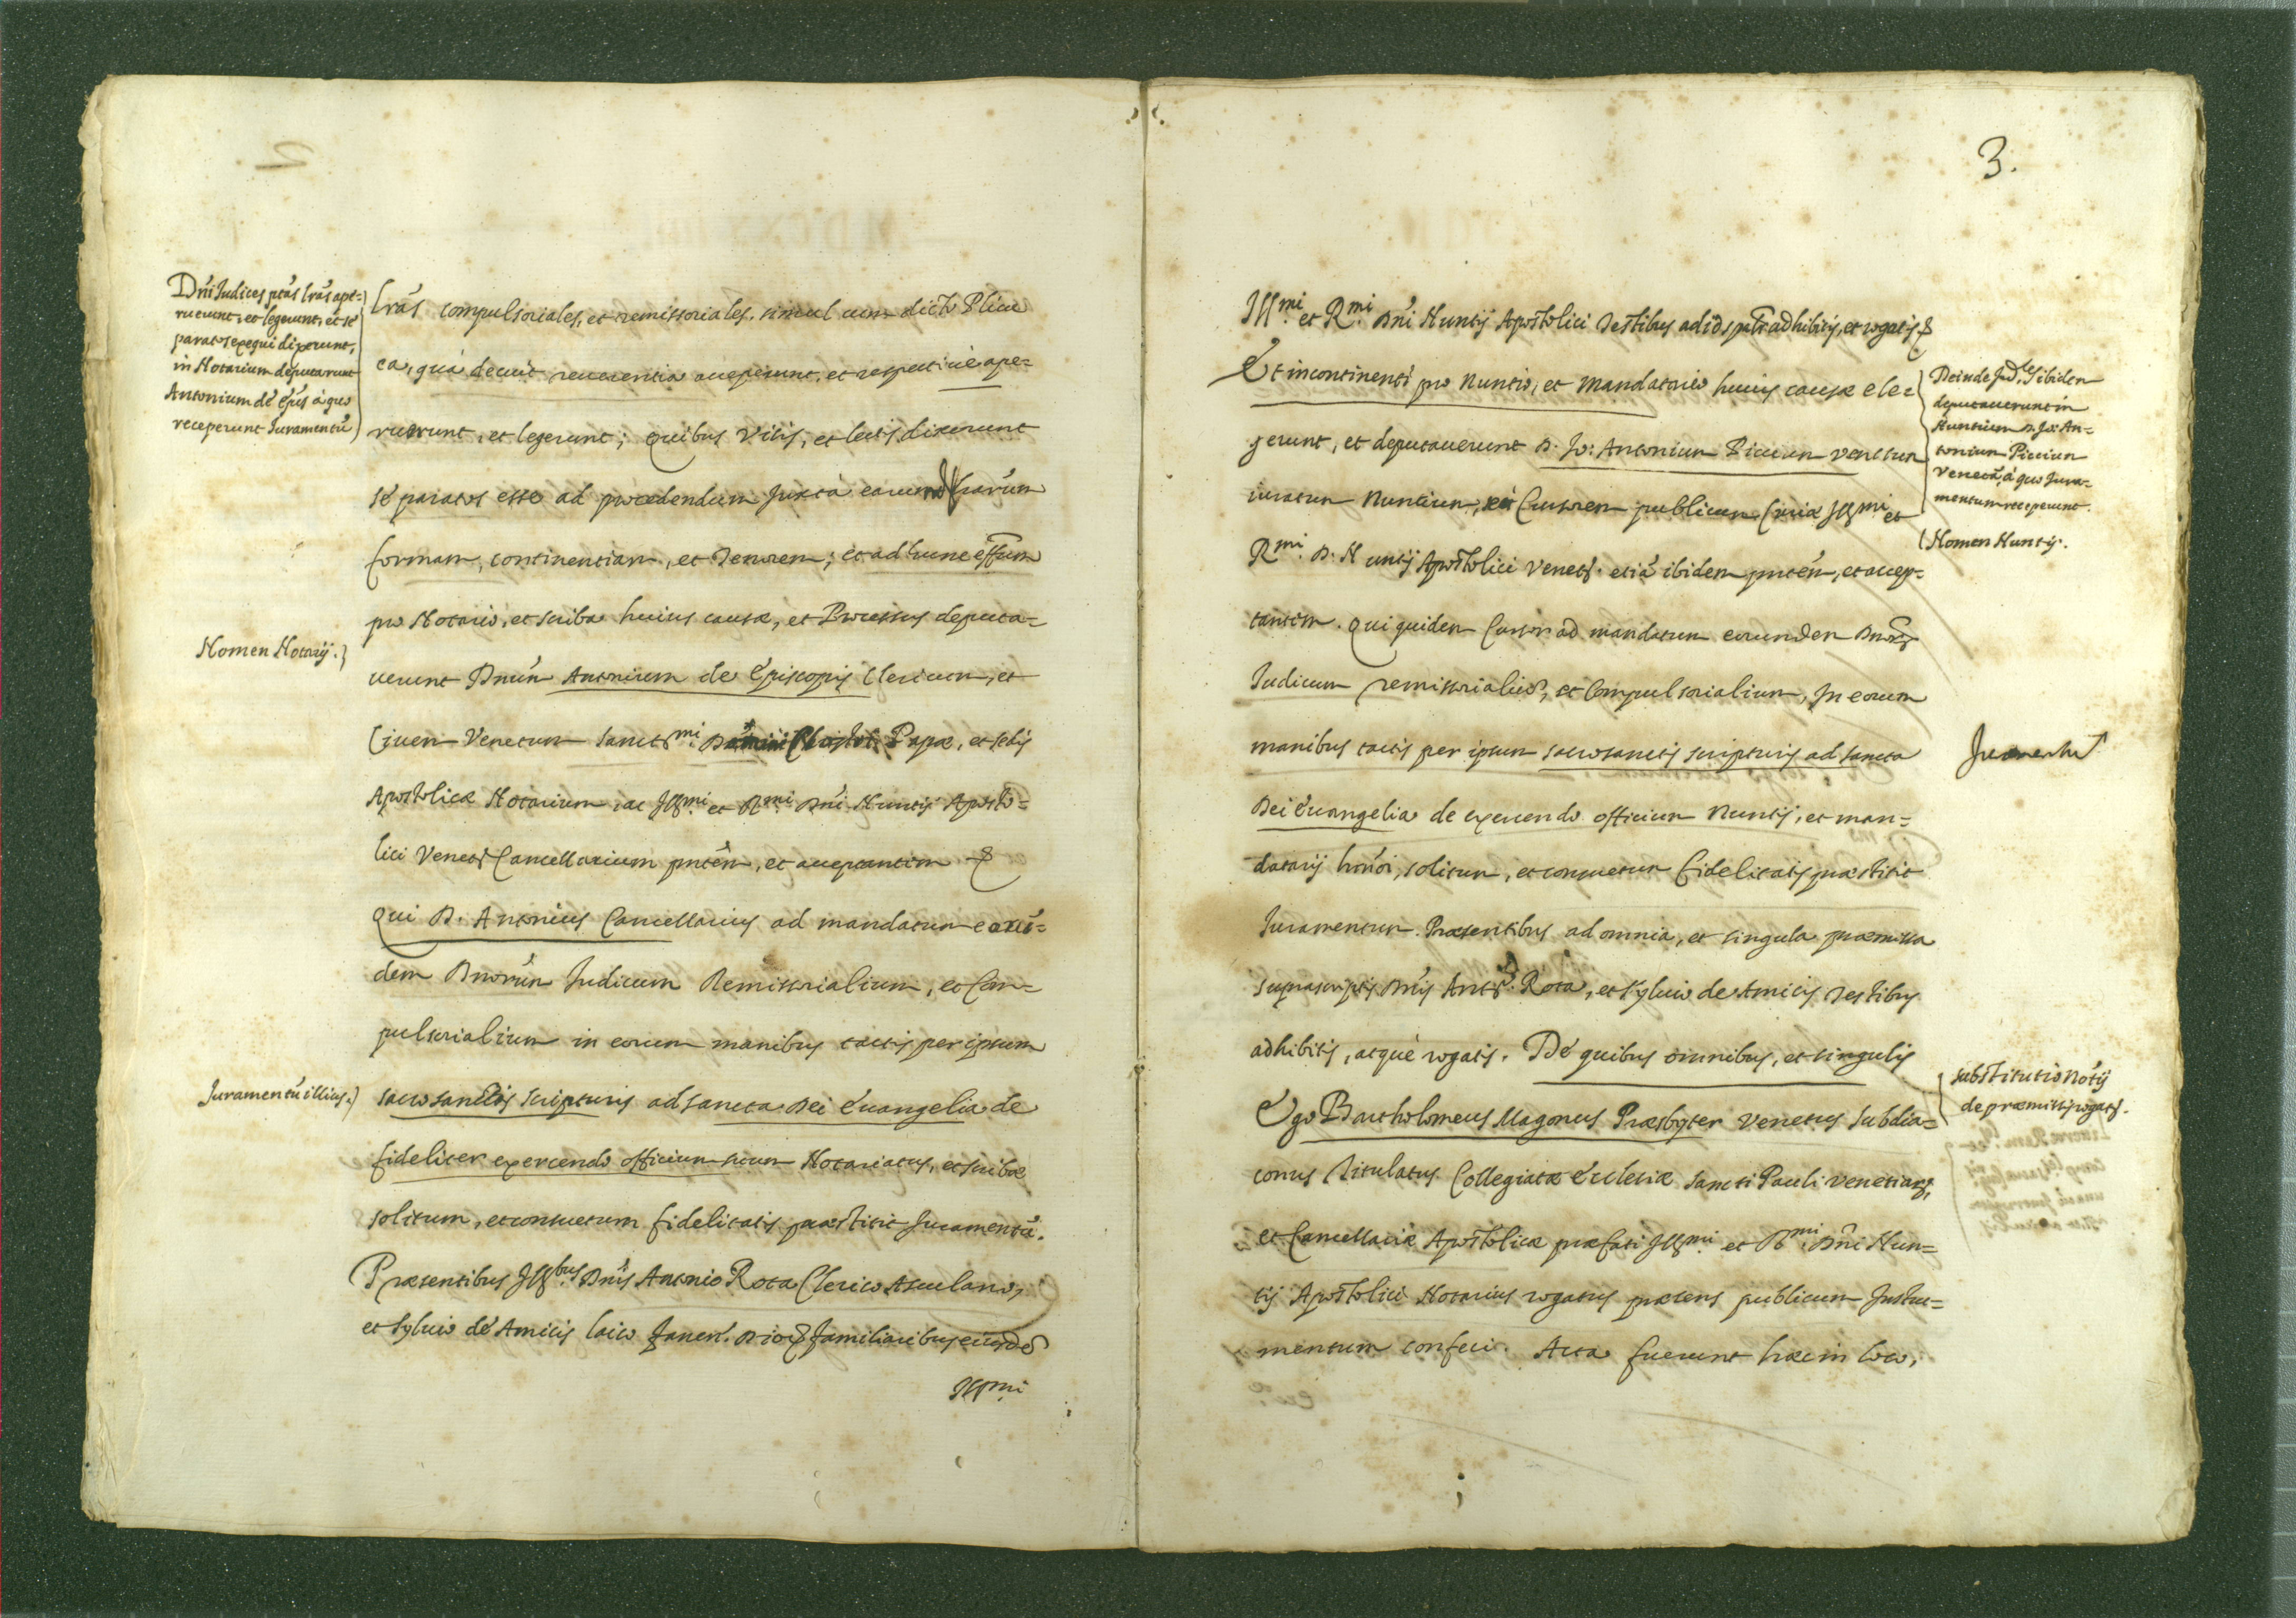 Dñi Iudices ptãs lrãs ape=
ruerunt, et legerunt, et se
paratos exequi dixerunt,
in Notarium deputarunt
Antonium de Epiis à quo
receperunt Iuramentũ
Lrãs compulsoriales, et remissoriales, simul cum dicto Plico
ea, quà decuit reuerentia acceperunt, et respectiuè ape=
ruerunt, et legerunt; Quibus visis, et lectis dixerunt
sé paratos esse ad procedendum Juxta earum lrarum
formam, continentiam, et tenorem; et ad hunc effũm
Nomen Notarij.
pro Notario, et scriba huius causæ, et Processus deputa=
uerunt Dnũm Antonium de Episcopis Clericum, et
Ciuem Venetum Sanctmi Papæ, et sedis
Apostolicæ Notarium, ac Illmi et Rmi Dñi Nuntij Aposto=
lici Venet Cancellarium pntẽm, et acceptantem &
Qui D. Antonius Cancellarius ad mandatum eorũ=
dem Dnorũm Iudicum Remissorialium, et Com=
pulsorialium in eorum manibus tactis per ipsum
Juramentũ illius.
sacrosanctis scripturis ad sancta Dei Euangelia de
fideliter exercendo officium suum Notariatus, et scribæ
solitum, et consuetum fidelitatis præstitit Juramentũ.
Præsentibus Illbus Dnĩs Antonio Rota Clerico Asculano,
et Syluio dé Amicis laico familiaribus eiusdẽ
Illmi
3.
Illmi et Rmi Dñi Nuntij Apostolici Testibus ad id spãlr adhibitis, et rogatis &
Et incontinenti pro Nuntio, et Mandatario huius causæ ele=
gerunt, et deputauerunt D. Jo: Antonium Piccium Venetum
iuratum Nuntium, et Cursorem publicum Curiæ Illmi et
Rmi D. Nuntij Apostolici Venet. etiã ibidem pntẽm, et accep=
tantem. Qui quidem Cursor ad mandatum eorundem Dnorũ
Iudicum remissorialiũ, et Compulsorialium, In eorum
manibus tactis per ipsum sacrosanctis scripturis ad sancta
Dei Euangelia de exercendo officium Nuntij, et man=
datarij hmõi, solitum, et consuetum fidelitatis præstitit
Iuramentum. Præsentibus ad omnia, et singula præmissa
suprascriptis Dnĩs Anto. Rota, et Syluio de Amicis Testibus
adhibitis, atque rogatis. Dé quibus omnibus, et singulis
Ego Bartholomeus Magonus Præsbyter Venetus Subdia=
conus Titulatus Collegiatæ Ecclesiæ Sancti Pauli Venetiarũ,
et Cancellariæ Apostolicæ præfati Illmi et Rmi Dñi Nun=
tij Apostolici Notarius rogatus præsens publicum Instru=
mentum confeci. Acta fuerunt hæc in loco,
Deinde Jud.ces ibidem
deputauerunt in
Nuntium D. Jo: An=
tonium Piccium
Venetũ, à quo Jura=
mentum receperunt.
Nomen Nuntij.
Juramentũ
Substitutio Notij
de præmissis rogati.